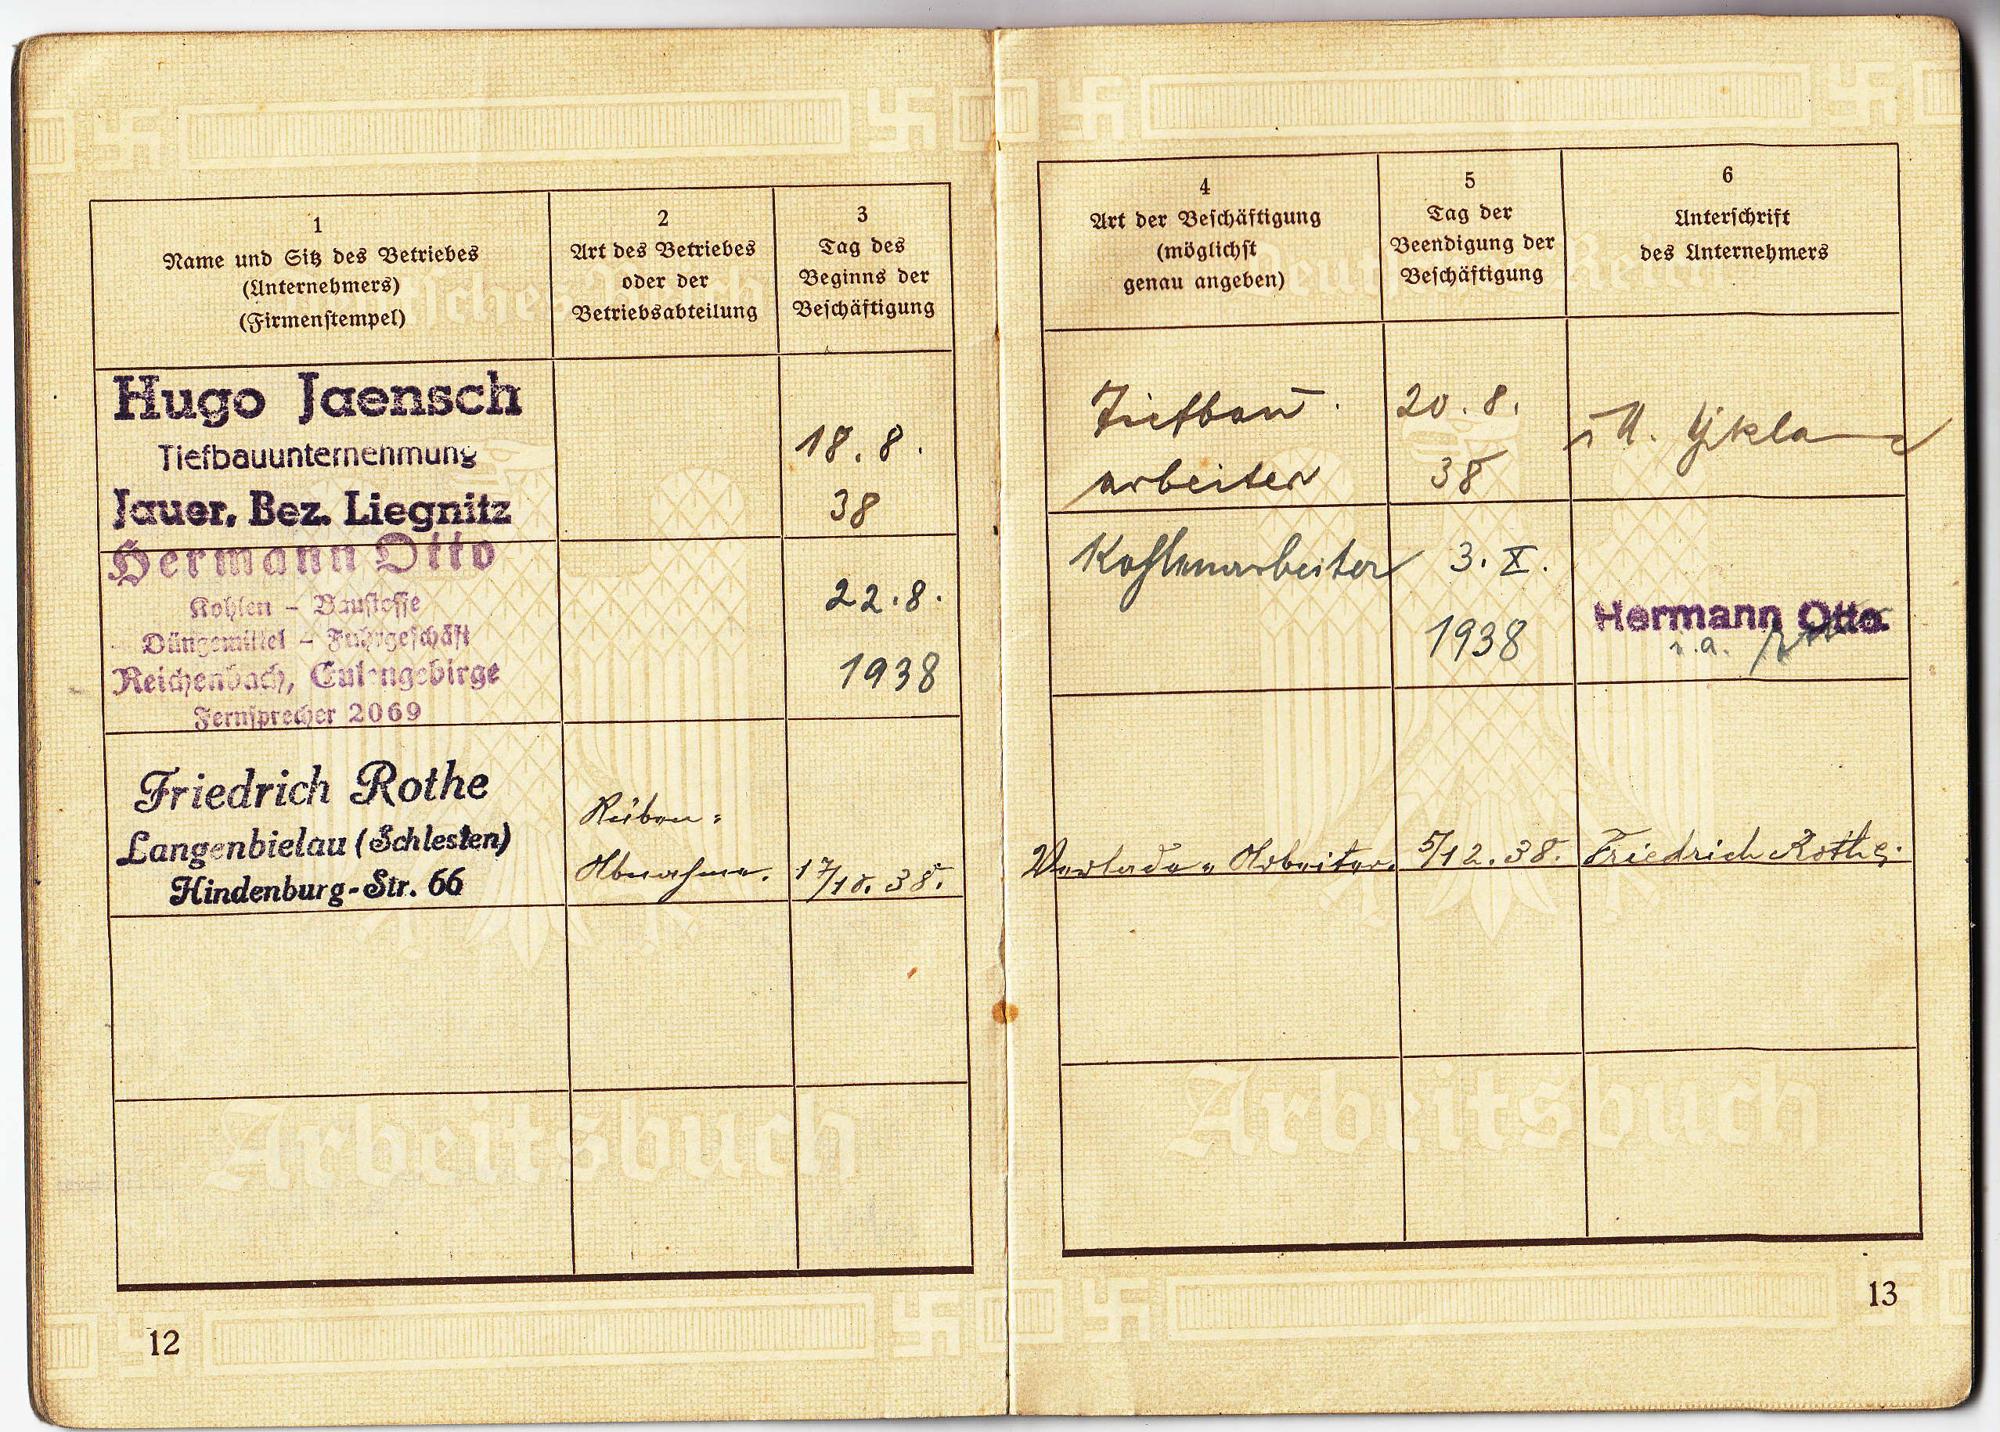 1
Name und Sitz des Betriebes
(Unternehmers)
(Firmenstempel)
2
Art des Betriebes
oder der
Betriebsabteilung
3
Tag des
Beginns der
Beschäftigung
Hugo Jaensch
Tiefbauunternehmung
Jauer, Bez. Liegnitz
18. 8.
38
Hermann Otto
Kohlen – Baustoffe
Düngemittel – Fuhrgeschäft
Reichenbach, Eulengebirge
Fernsprecher 2069
22. 8.
1938
Friedrich Rothe
Langenbielau (Schlesien)
Hindenburg-Str. 66
Rüben-
Abnahme.
17/10. 38.
Arbeitsbuch
12
4
Art der Beschäftigung
(möglichst
genau angeben)
5
Tag der
Beendigung der
Beschäftigung
6
Unterschrift
des Unternehmers
Tiefbau
arbeiter
20. 8.
38
Kohlenarbeiter
3. X.
1938
Hermann Otto
i. a.
Verlade-Arbeiter.
5/12. 38.
Friedrich Rothe.
Arbeitsbuch
13